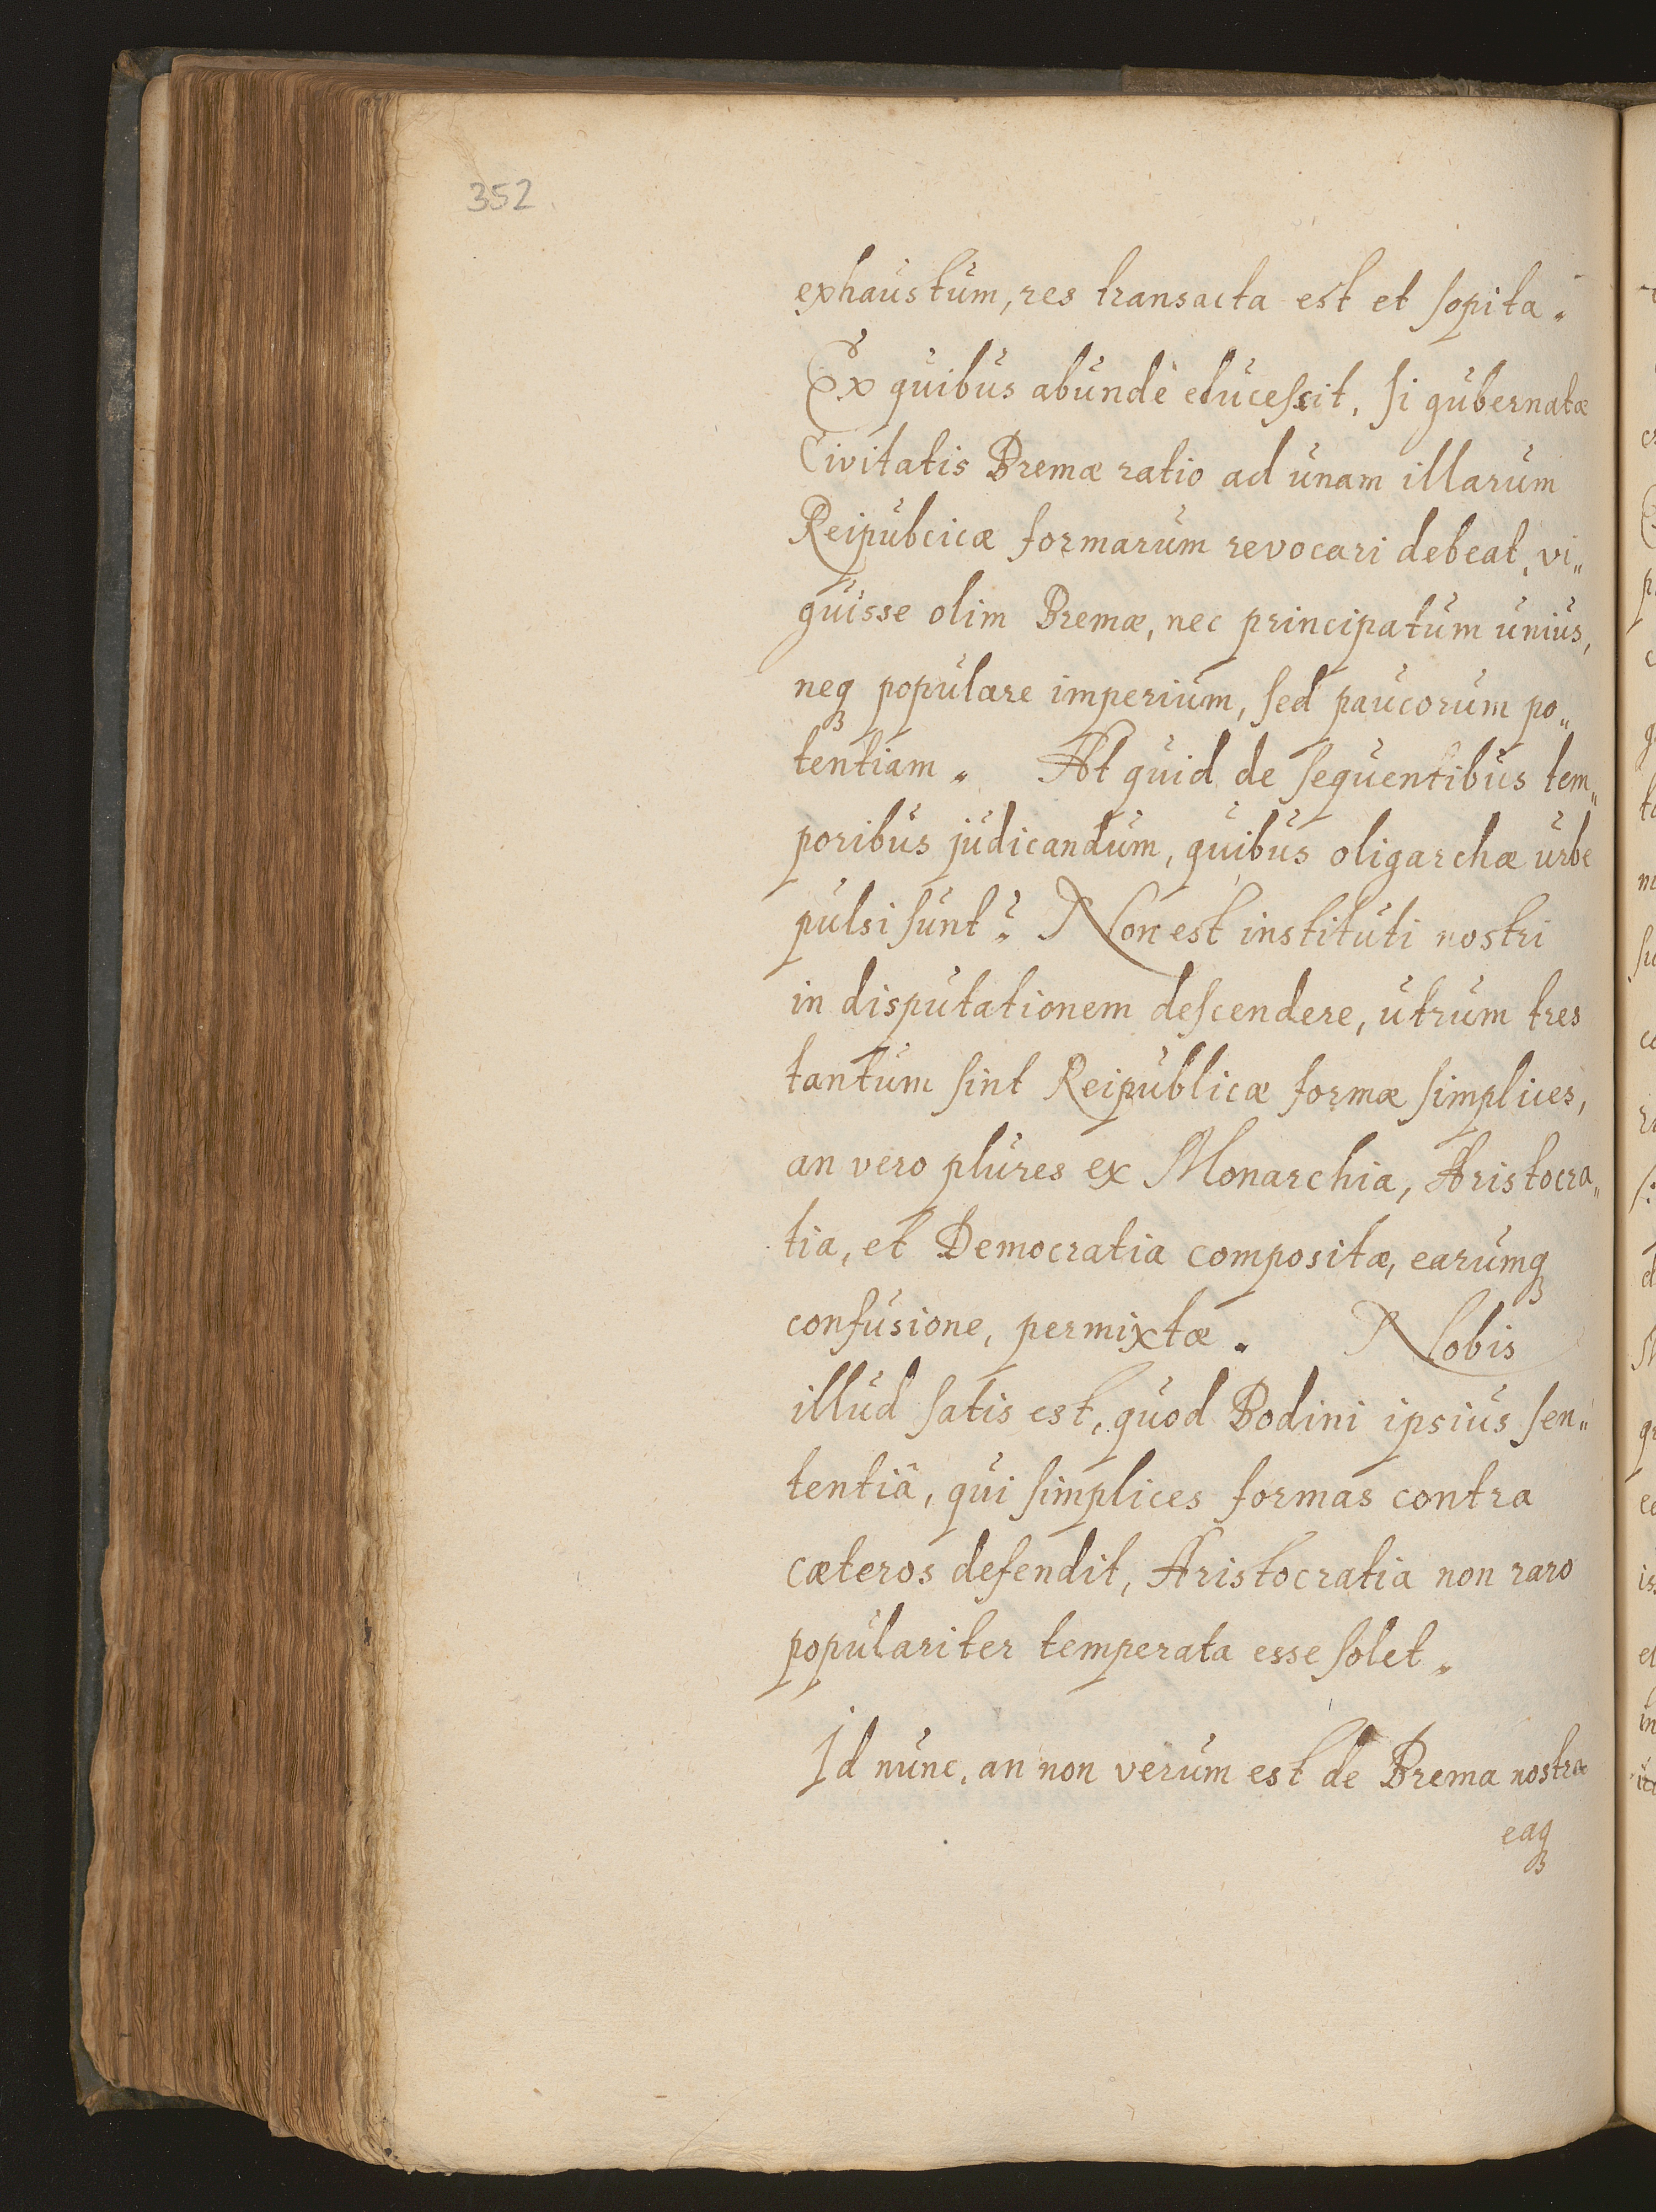 352
exhaustum, res transacta est et sopita.
Ex quibus abundè elucescit, si gubernatæ
Civitatis Bremæ ratio ad unam illarum
Reipubcicæ formarum revocari debeat, vi„
guisse olim Bremæ, nec principatum unius,
neqꝫ populare imperium, sed paucorum po„
tentiam. At quid de sequentibus tem„
poribus judicandum, quibus oligarchæ urbe
pulsi sunt? Non est instituti nostri
in disputationem descendere, utrum tres
tantum sint Reipublicæ formæ simplices,
an vero plures ex Monarchia, Aristocra„
tia, et Democratia compositæ, earumqꝫ
confusione, permixtæ. Nobis
illud satis est, quod Bodini ipsius sen„
tentiâ, qui simplices formas contra
cæteros defendit, Aristocratia non raro
populariter temperata esse solet.
Id nunc, an non verum est de Brema nostra
eaqꝫ